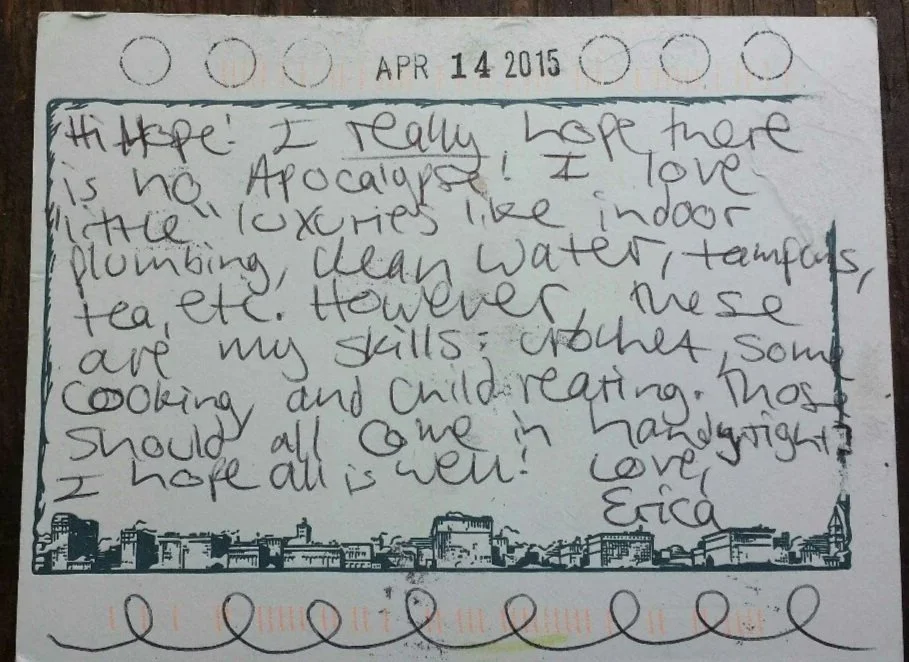 APR 14 2015
Hi Hope! I really hope there
is no Apocalypse! I love
"little" luxuries like indoor
plumbing, clean water, tampons,
tea, etc. However, these
are my skills: crochet, some
cooking, and child rearing. Those
should all come in handy, right?
I hope all is well! Love,
Erica